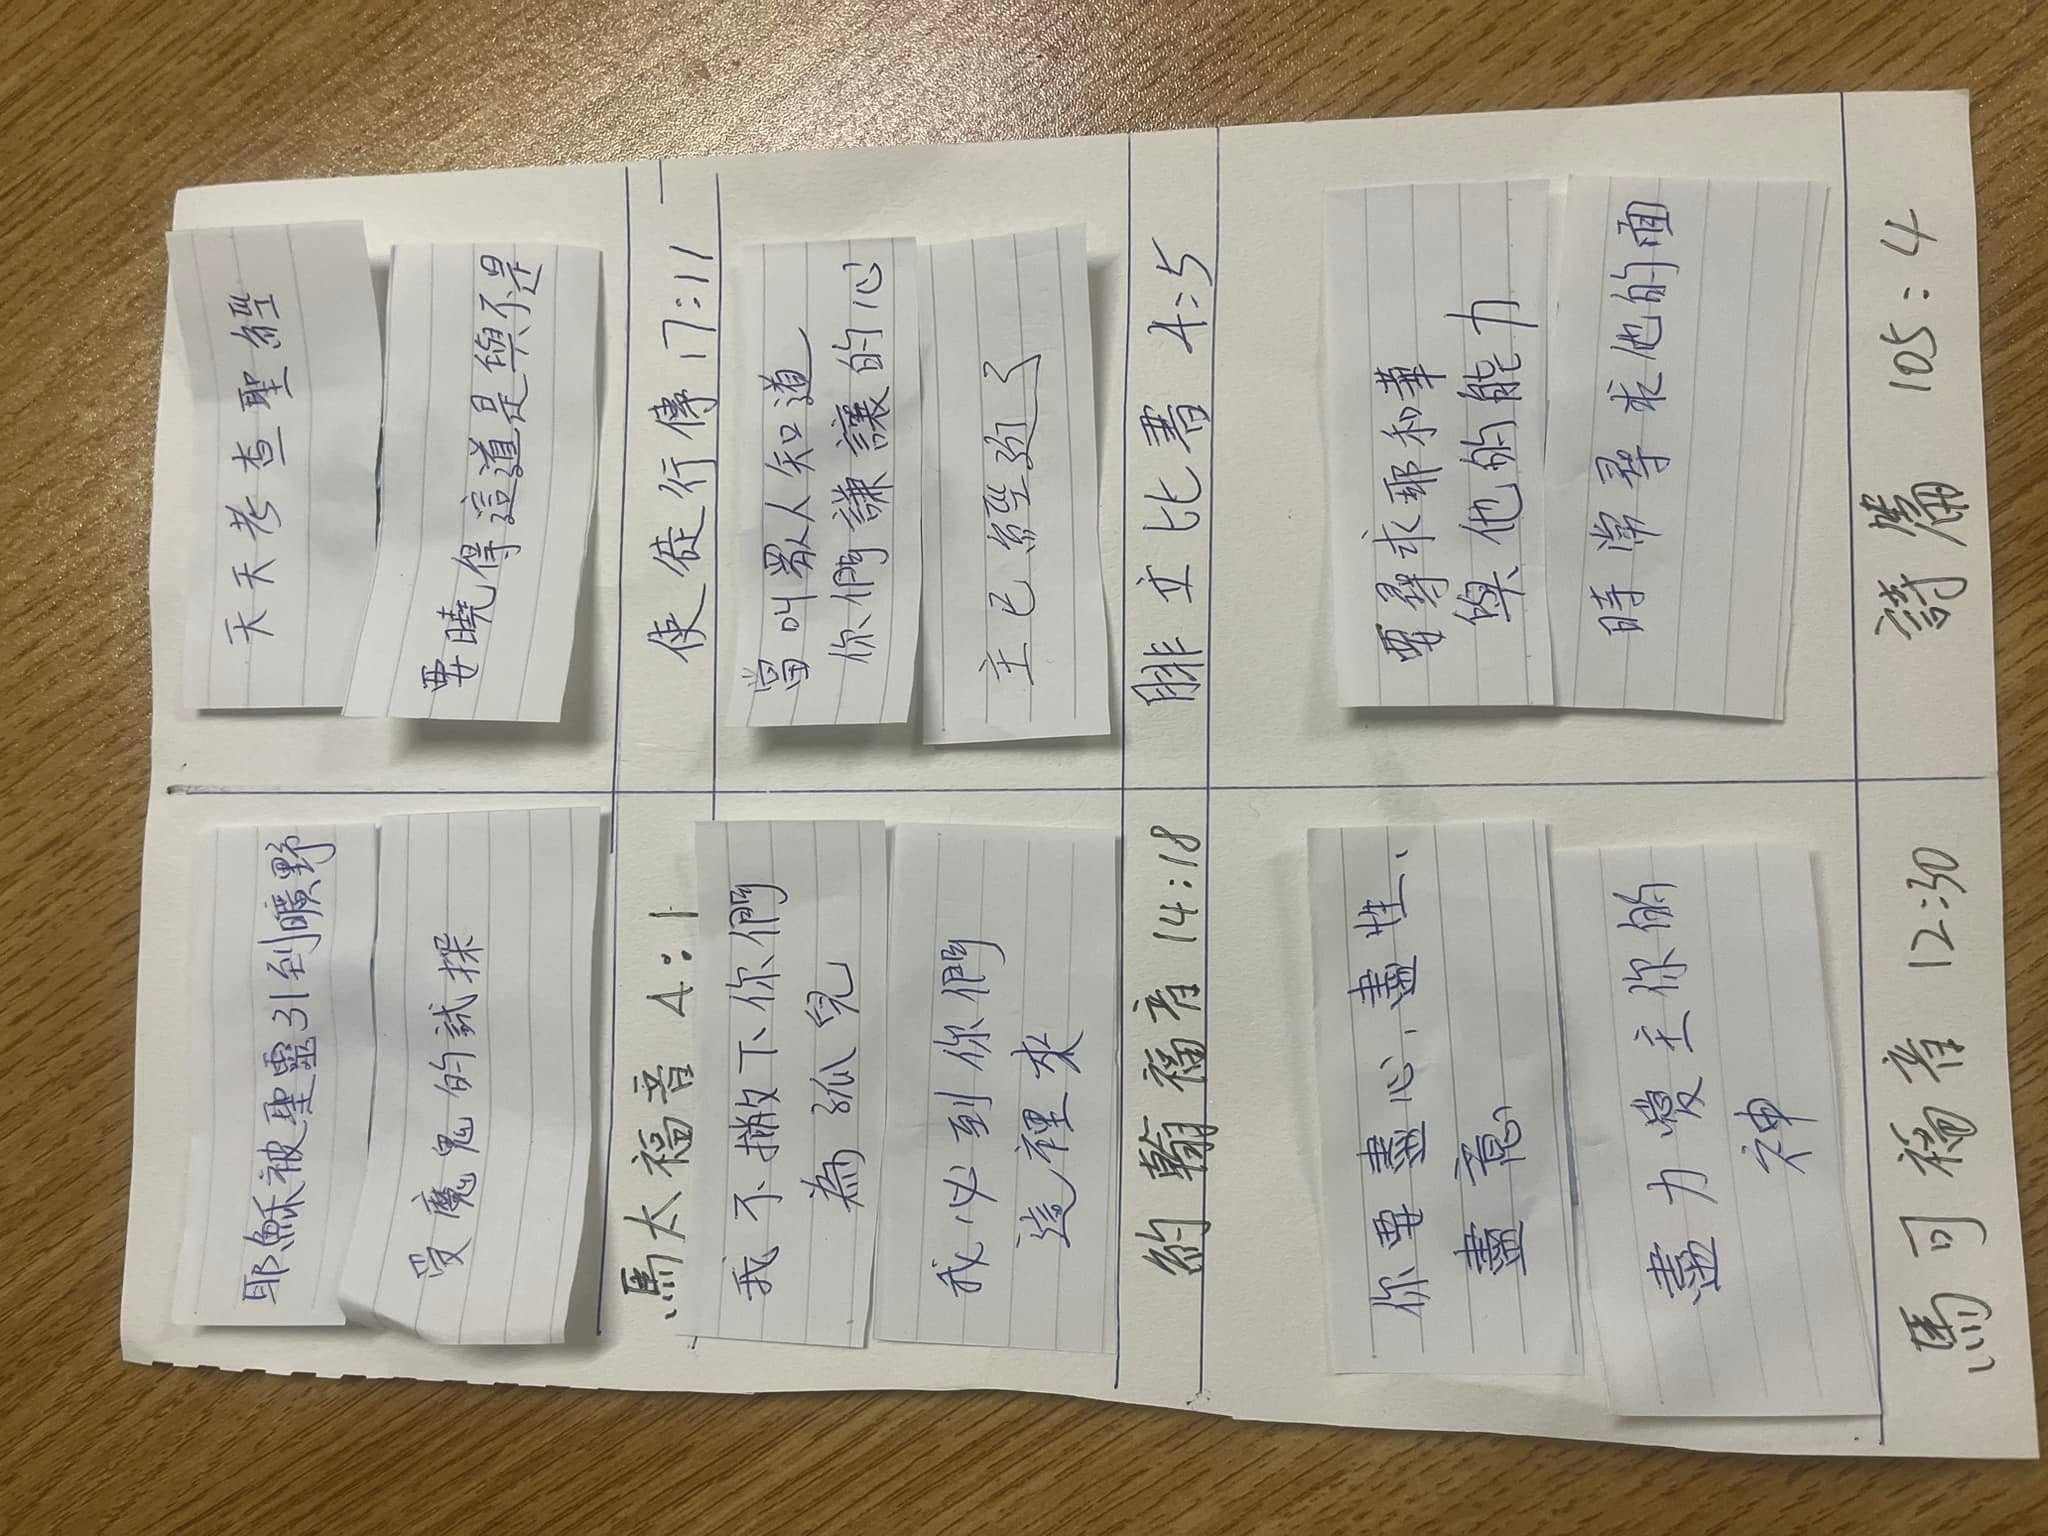 耶穌被聖靈引到曠野
受魔鬼的試探
馬太福音 4:1
天天考查聖經
要曉得這道是與不是
使徒行傳 17:11
我不撇下你們
為孤兒
我必到你們
這裡來
約翰福音 14:18
當叫眾人知道
你們謙讓的心
主已經近了
腓立比書 4:5
你要盡心、盡性、
盡意
盡力愛主你的
神
馬可福音 12:30
要尋求耶和華
與他的能力
時常尋求他的面
詩篇 105:4